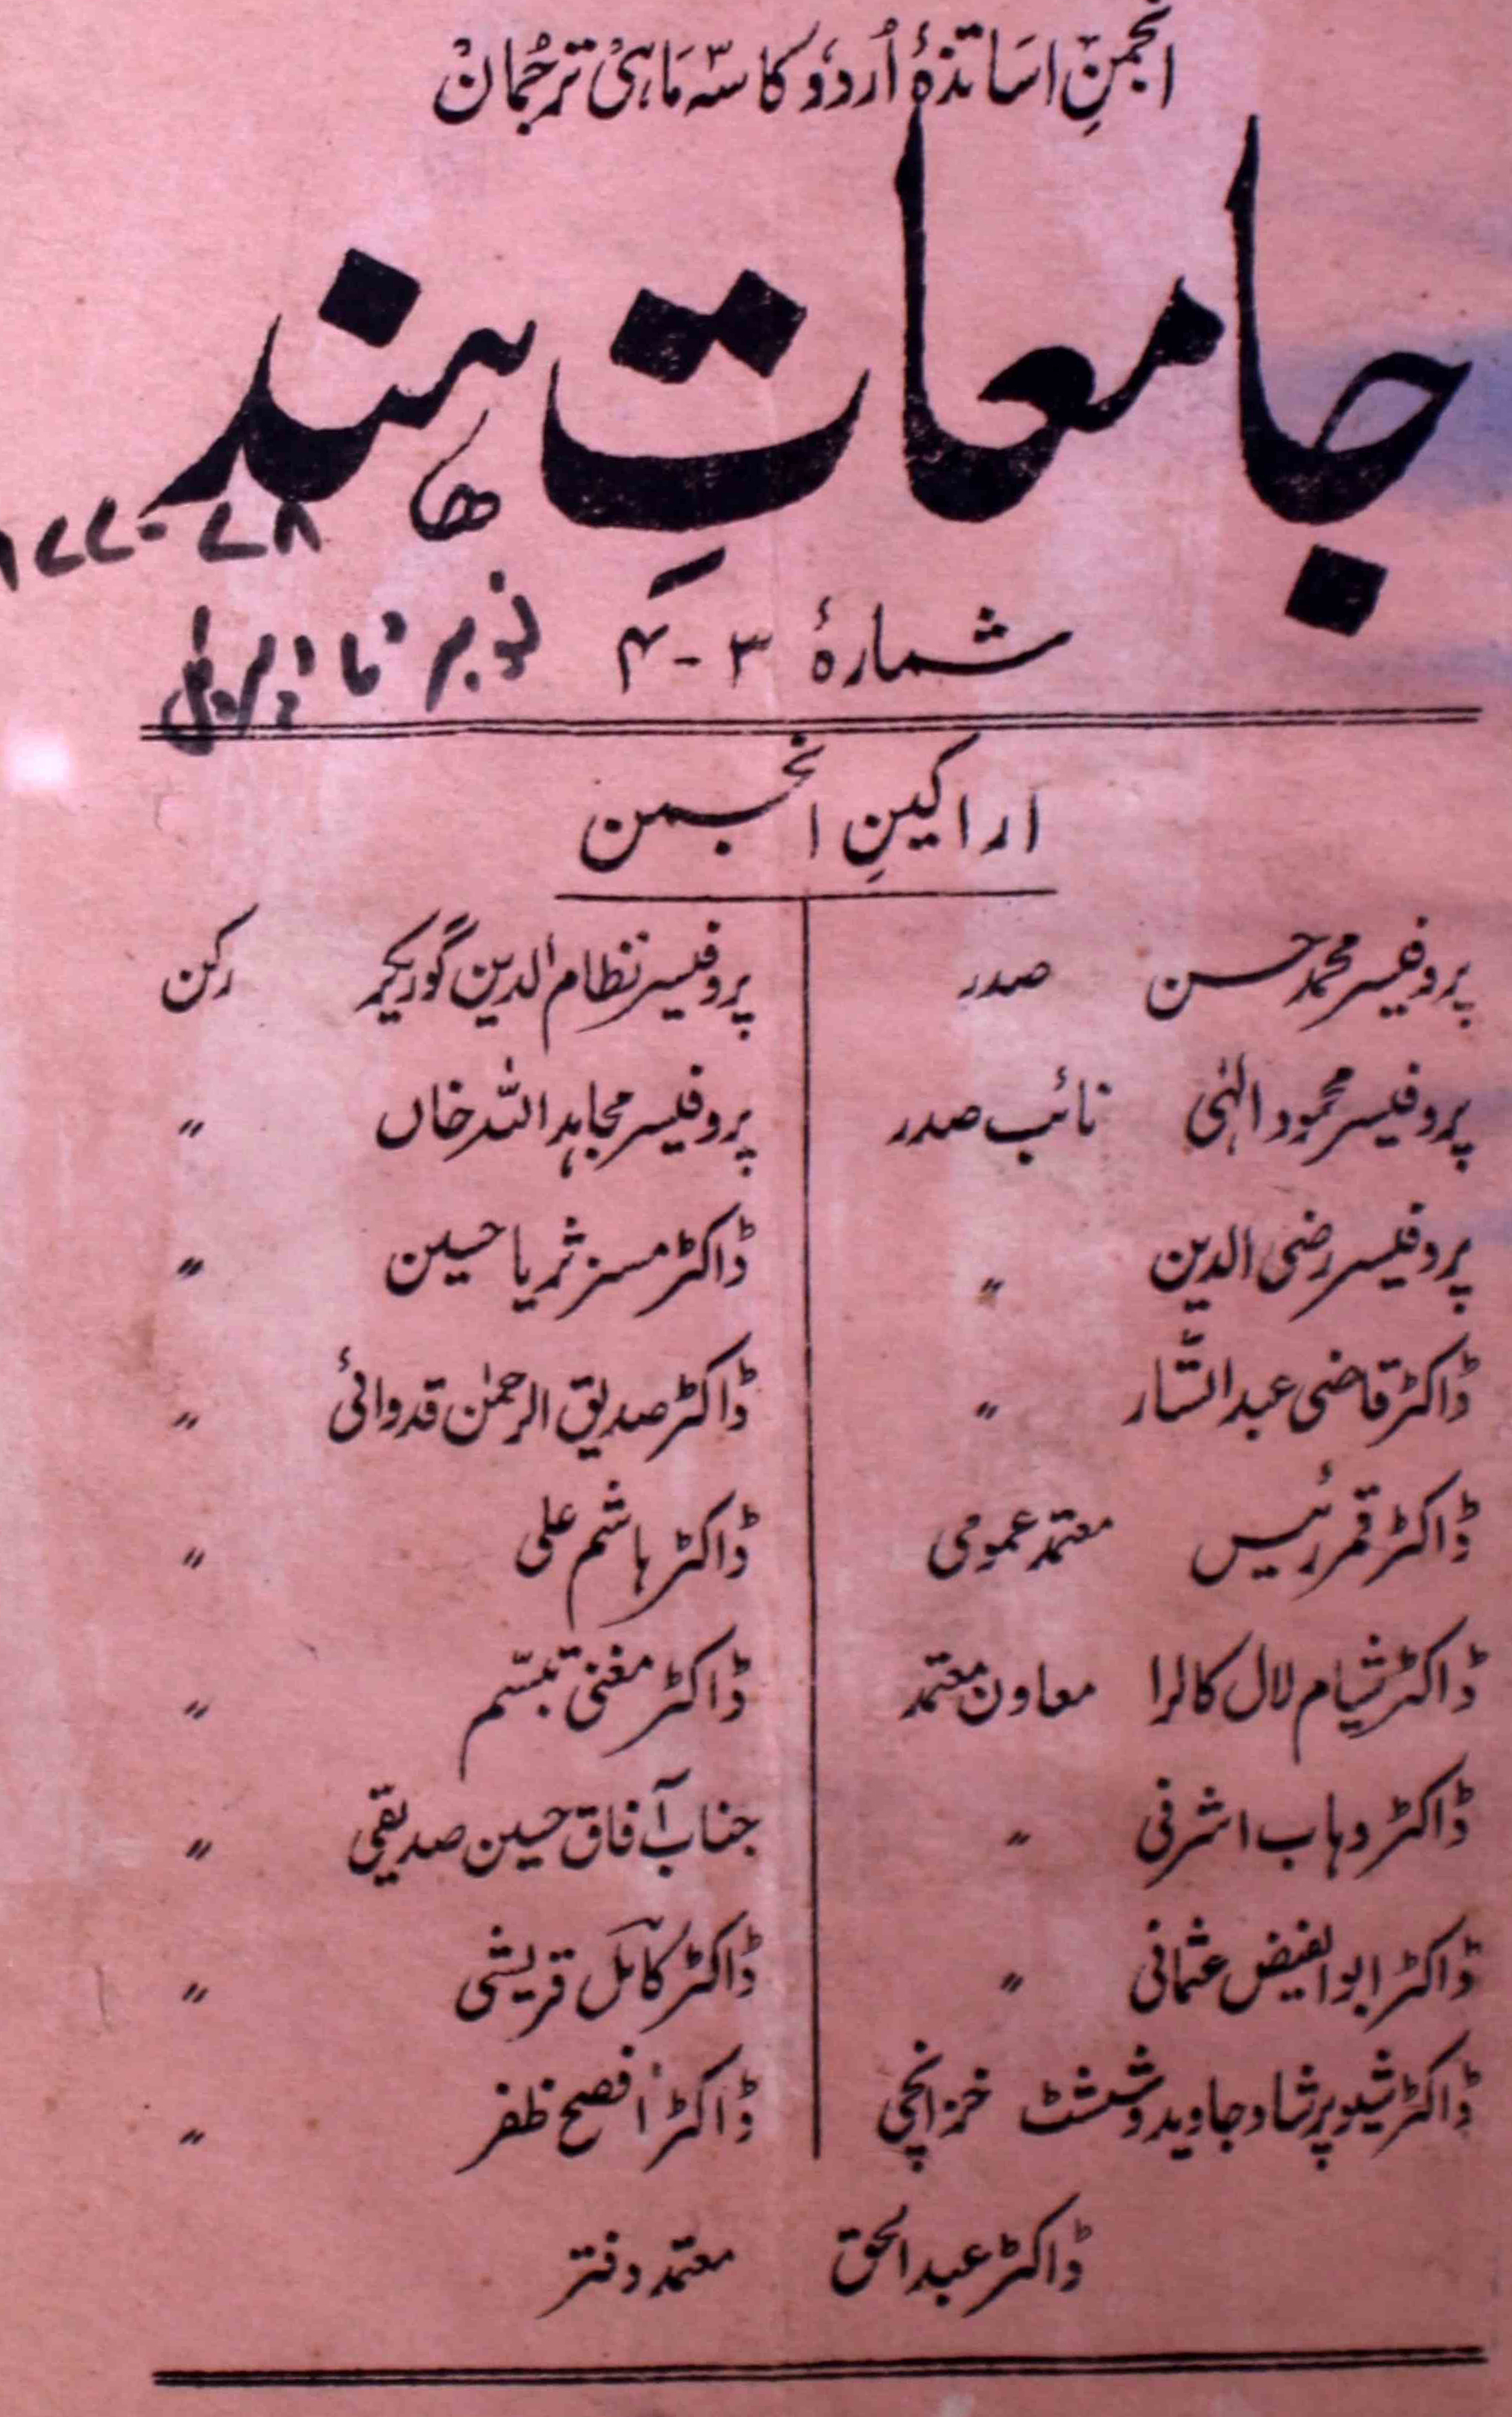 انجمنِ اساتذۂ اُردو کا سہ ماہی ترجمان
جامعاتِ ہند
۷۸-۱۹۷۷
شمارۂ ۳-۴ نومبر تا اپریل
اراکینِ انجمن
پروفیسر محمد حسن صدر
پروفیسر محمود الہٰی نائب صدر
پروفیسر رضی الدین "
ڈاکٹر قاضی عبدالستّار "
ڈاکٹر قمر رئیس معتمد عمومی
ڈاکٹر شیام لال کالرا معاون معتمد
ڈاکٹر وہاب اشرفی "
ڈاکٹر ابوالفیض عثمانی "
ڈاکٹر شیو پرشاد جاوید وششٹ خزانچی
پروفیسر نظام الدین گوریکر رکن
پروفیسر مجاہد اللہ خاں "
ڈاکٹر مسز ثریا حسین "
ڈاکٹر صدیق الرحمٰن قدوائی "
ڈاکٹر ہاشم علی "
ڈاکٹر مغنی تبسّم "
جناب آفاق حسین صدیقی "
ڈاکٹر کامل قریشی "
ڈاکٹر افصح ظفر "
ڈاکٹر عبدالحق معتمد دفتر